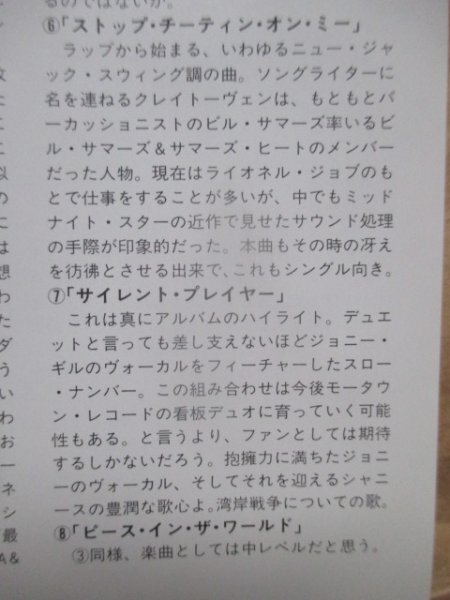 るのではないか。
⑥「ストップ・チーティン・オン・ミー」
ラップから始まる、いわゆるニュー・ジャ
ック・スウィング調の曲。ソングライターに
名を連ねるクレイトーヴェンは、もともとパ
ーカッショニストのビル・サマーズ率いるビ
ル・サマーズ&サマーズ・ヒートのメンバー
だった人物。現在はライオネル・ジョブのも
とで仕事をすることが多いが、中でもミッド
ナイト・スターの近作で見せたサウンド処理
の手際が印象的だった。本曲もその時の冴え
を彷彿とさせる出来で、これもシングル向き。
⑦「サイレント・プレイヤー」
これは真にアルバムのハイライト。デュエ
ットと言っても差し支えないほどジョニー・
ギルのヴォーカルをフィーチャーしたスロー
・ナンバー。この組み合わせは今後モータウ
ン・レコードの看板デュオに育っていく可能
性もある。と言うより、ファンとしては期待
するしかないだろう。抱擁力に満ちたジョニ
ーのヴォーカル、そしてそれを迎えるシャニ
ースの豊潤な歌心よ。湾岸戦争についての歌。
⑧「ピース・イン・ザ・ワールド」
③同様、楽曲としては中レベルだと思う。